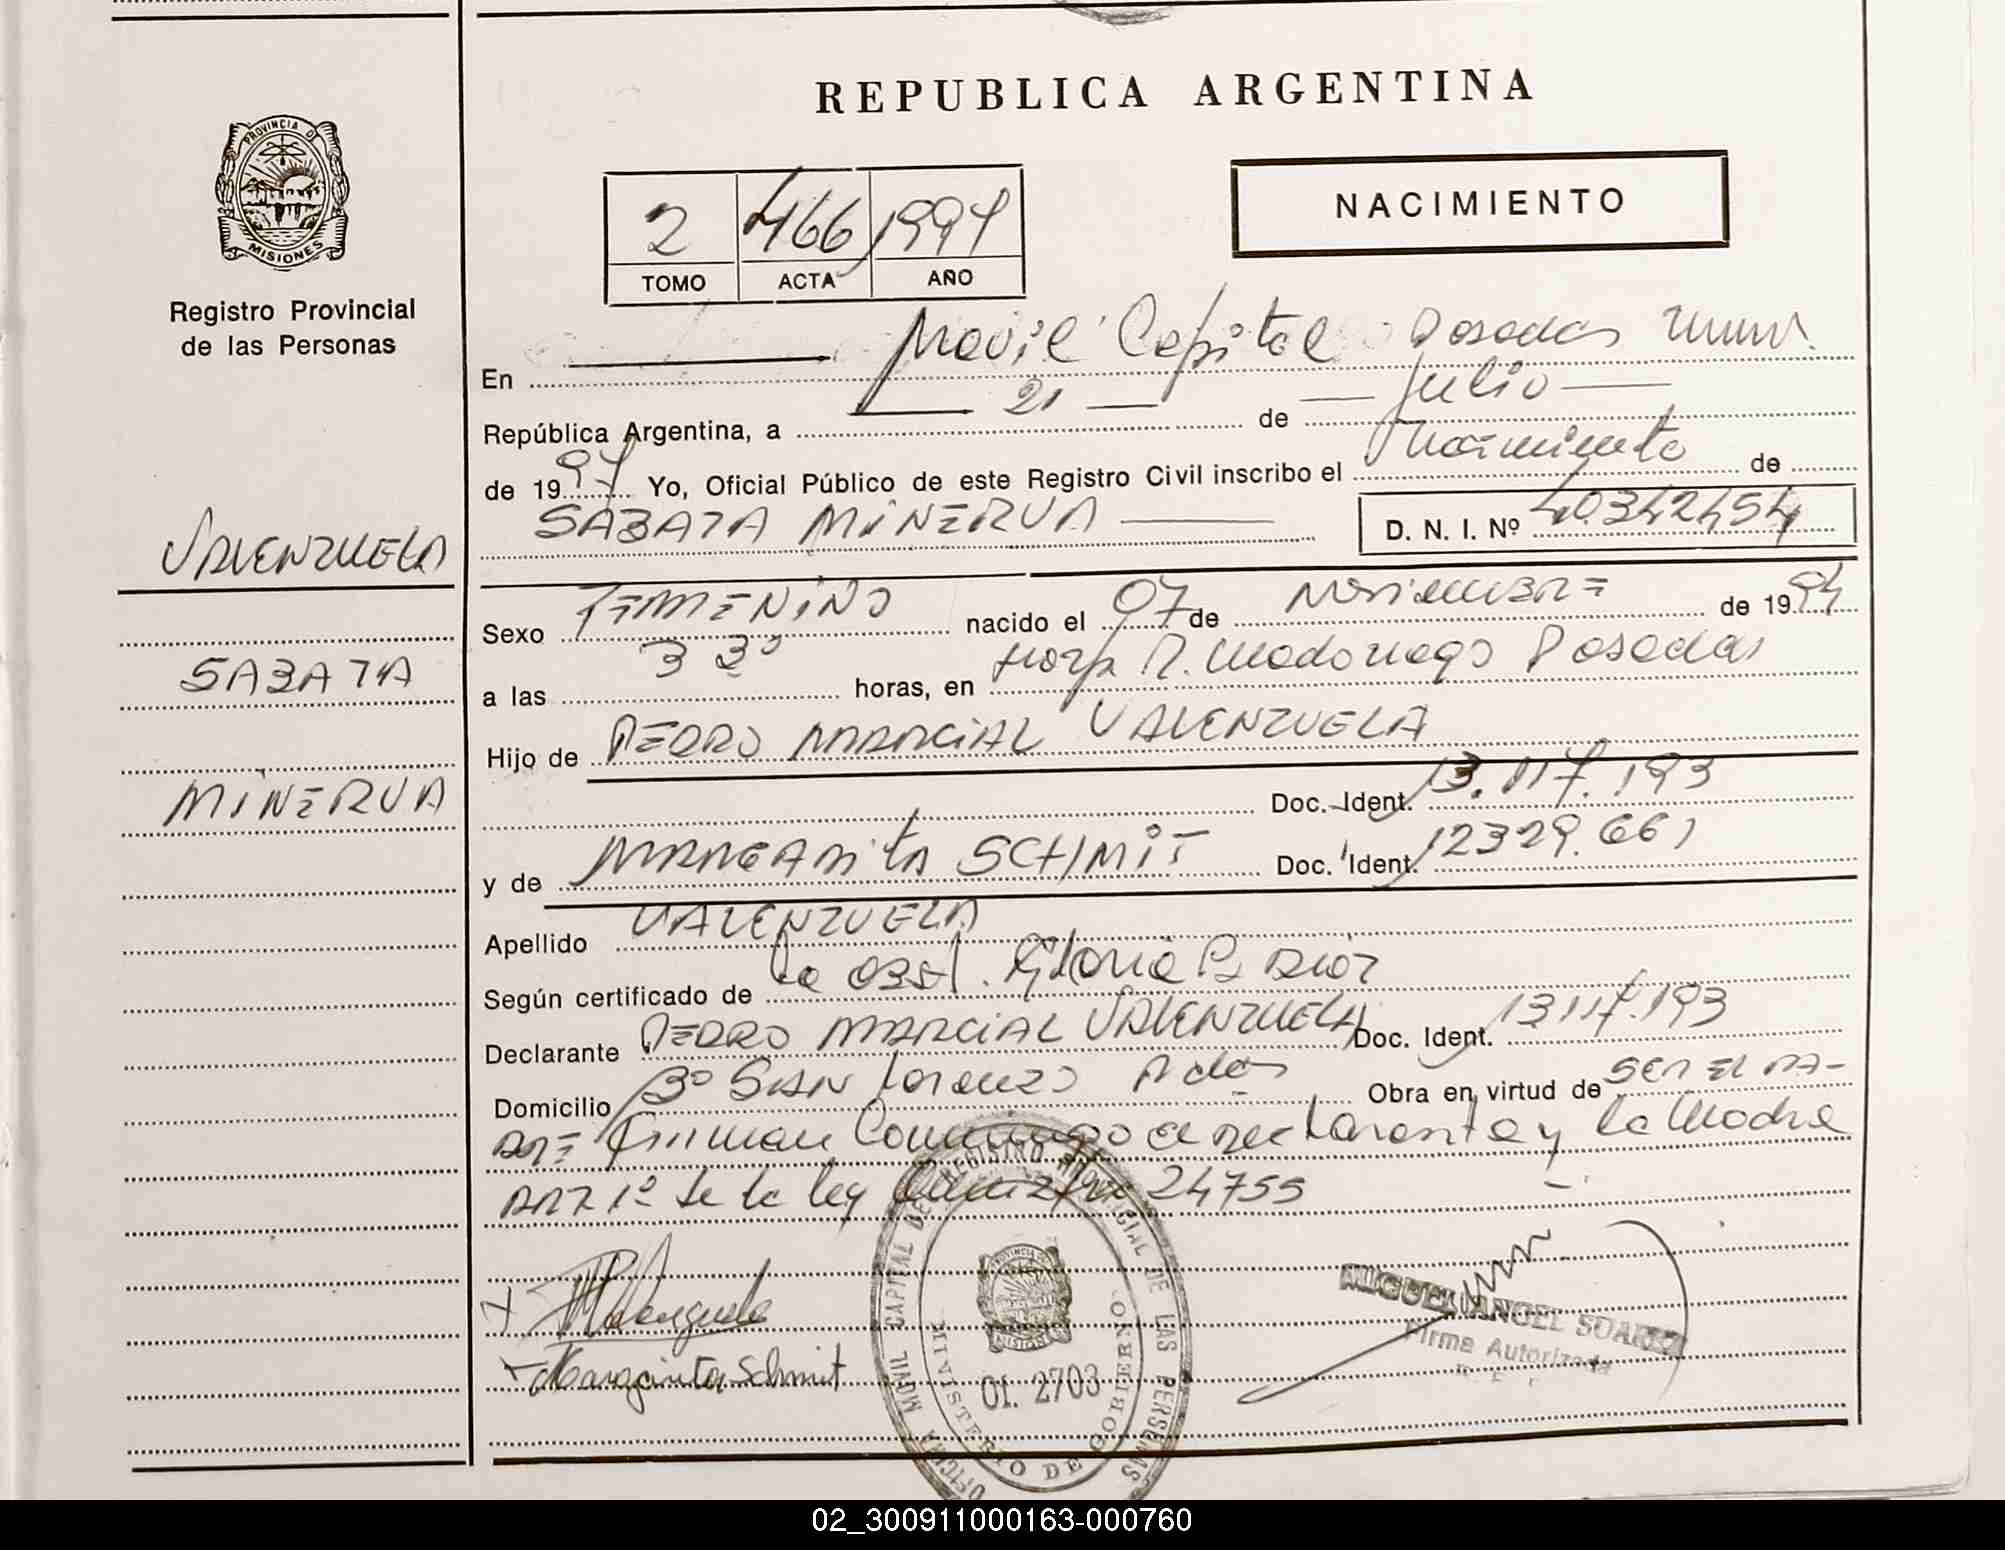 REPUBLICA ARGENTINA
PROVINCIA DE
MISIONES
Registro Provincial
de las Personas
NACIMIENTO
2 466 1997
TOMO ACTA AÑO
En Movil Capital Posedas
República Argentina, a 21 de Julio
de 1997 Yo, Oficial Público de este Registro Civil inscribo el Nacimiento de
SABATA MINERVA D. N. I. Nº 40.342454
VALENZUELA
SABATA
MINERVA
Sexo FEMENINO nacido el 07 de Noviembre de 1994
a las 3 30 horas, en Hosp. R. Madariaga Posadas
Hijo de PEDRO MARCIAL VALENZUELA
Doc. Ident. 13.117.193
y de MARGARITA SCHMIT Doc. Ident. 12329.661
Apellido VALENZUELA
Según certificado de la OBST.
Declarante PEDRO MARCIAL VALENZUELA Doc. Ident. 13117.193
Domicilio Bº SAN Lorenzo Pdas Obra en virtud de SER EL PA-
DRE Firman Conmigo el declarante y la Madre
ART 1º de la ley 24755
Valenzuela
Margarita Schmit
MIGUEL ANGEL SUAREZ
Firma Autorizada
REGISTRO PROVINCIAL DE LAS PERSONAS
OFICINA MOVIL CAPITAL DE
MINISTERIO DE GOBIERNO
PROVINCIA DE
MISIONES
Of. 2703
02_300911000163-000760